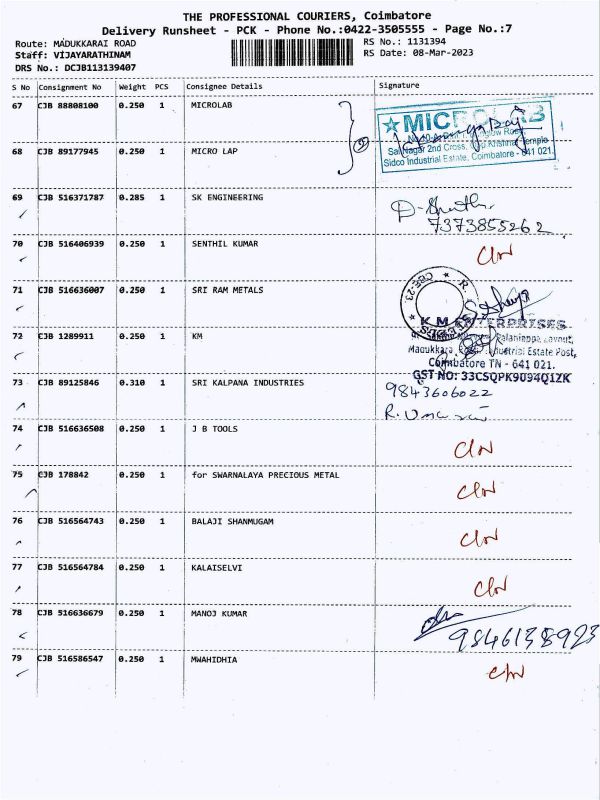 THE PROFESSIONAL COURIERS, Coimbatore
Delivery Runsheet - PCK - Phone No.:0422-3505555 - Page No.:7
Route: MADUKKARAI ROAD
RS No.: 1131394
Staff: VIJAYARATHINAM
RS Date: 08-Mar-2023
DRS No.: DCJB113139407
S No Consignment No Weight PCS Consignee Details Signature
67 CJB 88808100 0.250 1 MICROLAB
MICROLAB
68 CJB 89177945 0.250 1 MICRO LAP
Sai Nagar 2nd Cross, Temple
Sidco Industrial Estate, Coimbatore - 641 021.
69 CJB 516371787 0.285 1 SK ENGINEERING
7373855262
70 CJB 516406939 0.250 1 SENTHIL KUMAR
71 CJB 516636007 0.250 1 SRI RAM METALS
CBE-23.
72 CJB 1289911 0.250 1 KM
K M ENTERPRISES
Palaniappa Layout,
Madukkarai Industrial Estate Post,
Coimbatore TN - 641 021.
GST NO: 33CSQPK9094Q1ZK
73 CJB 89125846 0.310 1 SRI KALPANA INDUSTRIES
9843606022
74 CJB 516636508 0.250 1 J B TOOLS
75 CJB 178842 0.250 1 for SWARNALAYA PRECIOUS METAL
76 CJB 516564743 0.250 1 BALAJI SHANMUGAM
77 CJB 516564784 0.250 1 KALAISELVI
78 CJB 516636679 0.250 1 MANOJ KUMAR
9846138923
79 CJB 516586547 0.250 1 MWAHIDHIA